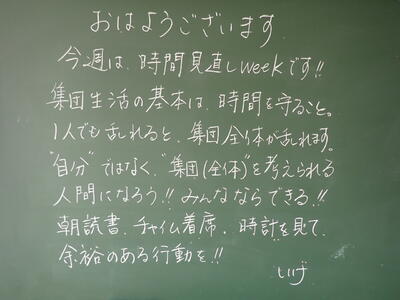 おはようございます
今週は、時間見直しweekです!!
集団生活の基本は、時間を守ること。
1人でも乱れると、集団全体が乱れます。
"自分"ではなく、"集団(全体)"を考えられる
人間になろう!! みんなならできる!!
朝読書、チャイム着席、時計を見て、
余裕のある行動を!!